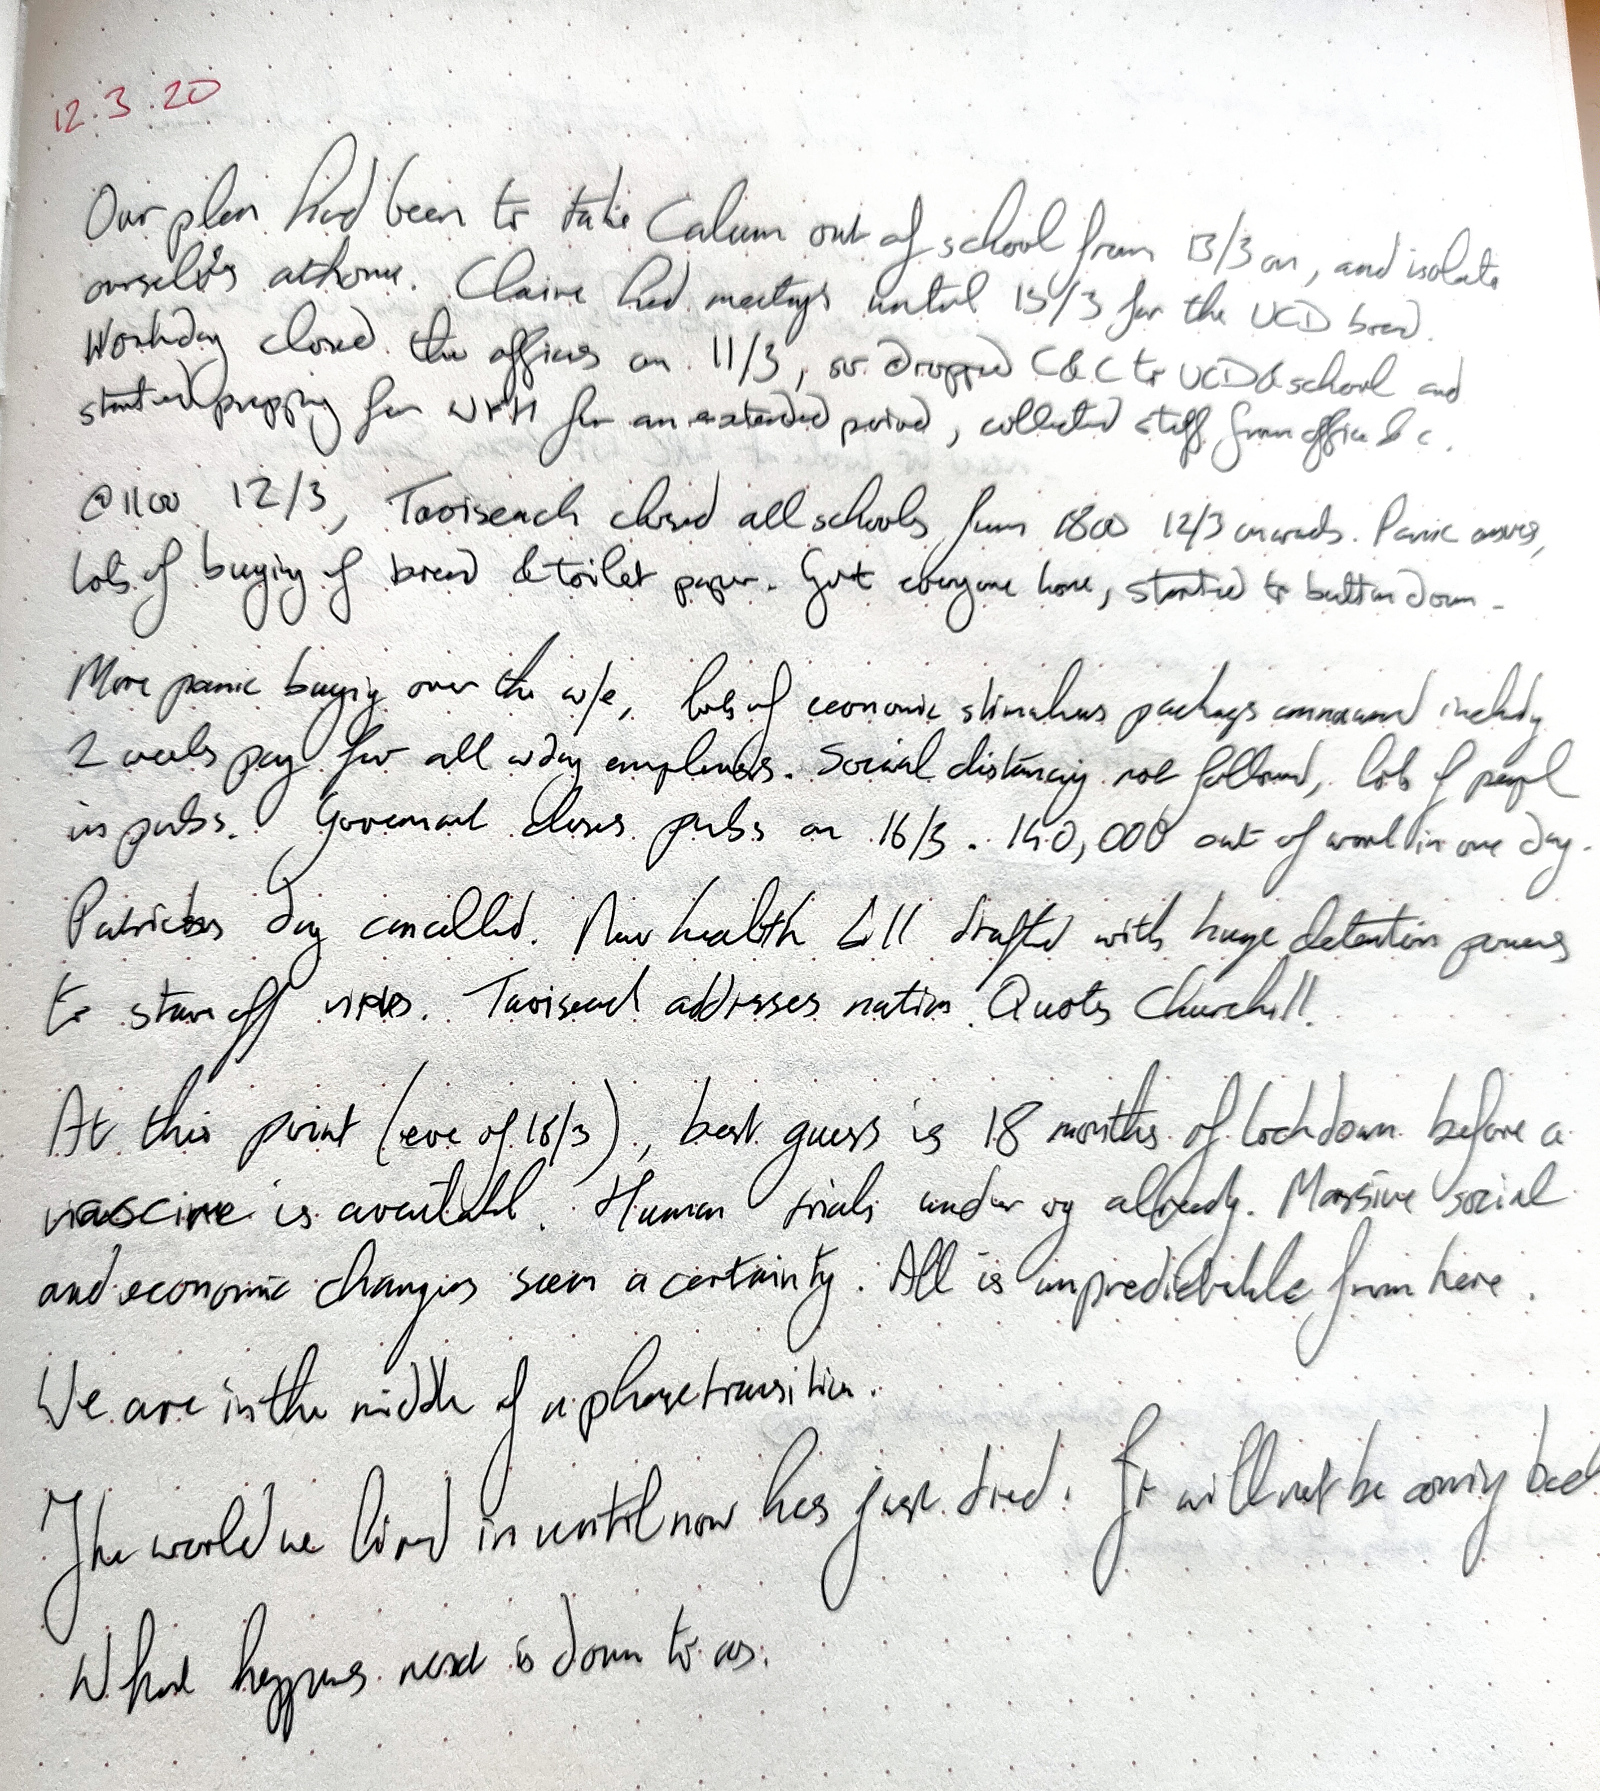 12.3.20
Our plan had been to take Calum out of school from 13/3 on, and isolate
ourselves at home. Claire had meetings until 13/3 for the UCD board.
Workday closed the offices on 11/3, so dropped C&C to UCD & school and
started prepping for WFH for an extended period, collected stuff from office &c.
@1100 12/3, Taoiseach closed all schools from 1800 12/3 onwards. Panic ensues,
lots of buying of bread & toilet paper. Got everyone home, started to button down.
More panic buying over the w/e, lots of economic stimulus packages announced including
2 weeks pay for all wday employees. Social distancing not followed, lots of people
in pubs. Government closes pubs on 16/3. 140,000 out of work in one day.
Patricks day cancelled. New health bill drafted with huge detention powers
to stave off virus. Taoiseach addresses nation. Quotes Churchill.
At this point (eve of 18/3), best guess is 18 months of lockdown before a
vascine is available. Human trials under way already. Massive social
and economic changes seem a certainty. All is unpredictable from here.
We are in the middle of a phase transition.
The world we lived in until now has just died. It will not be coming back
What happens next is down to us.